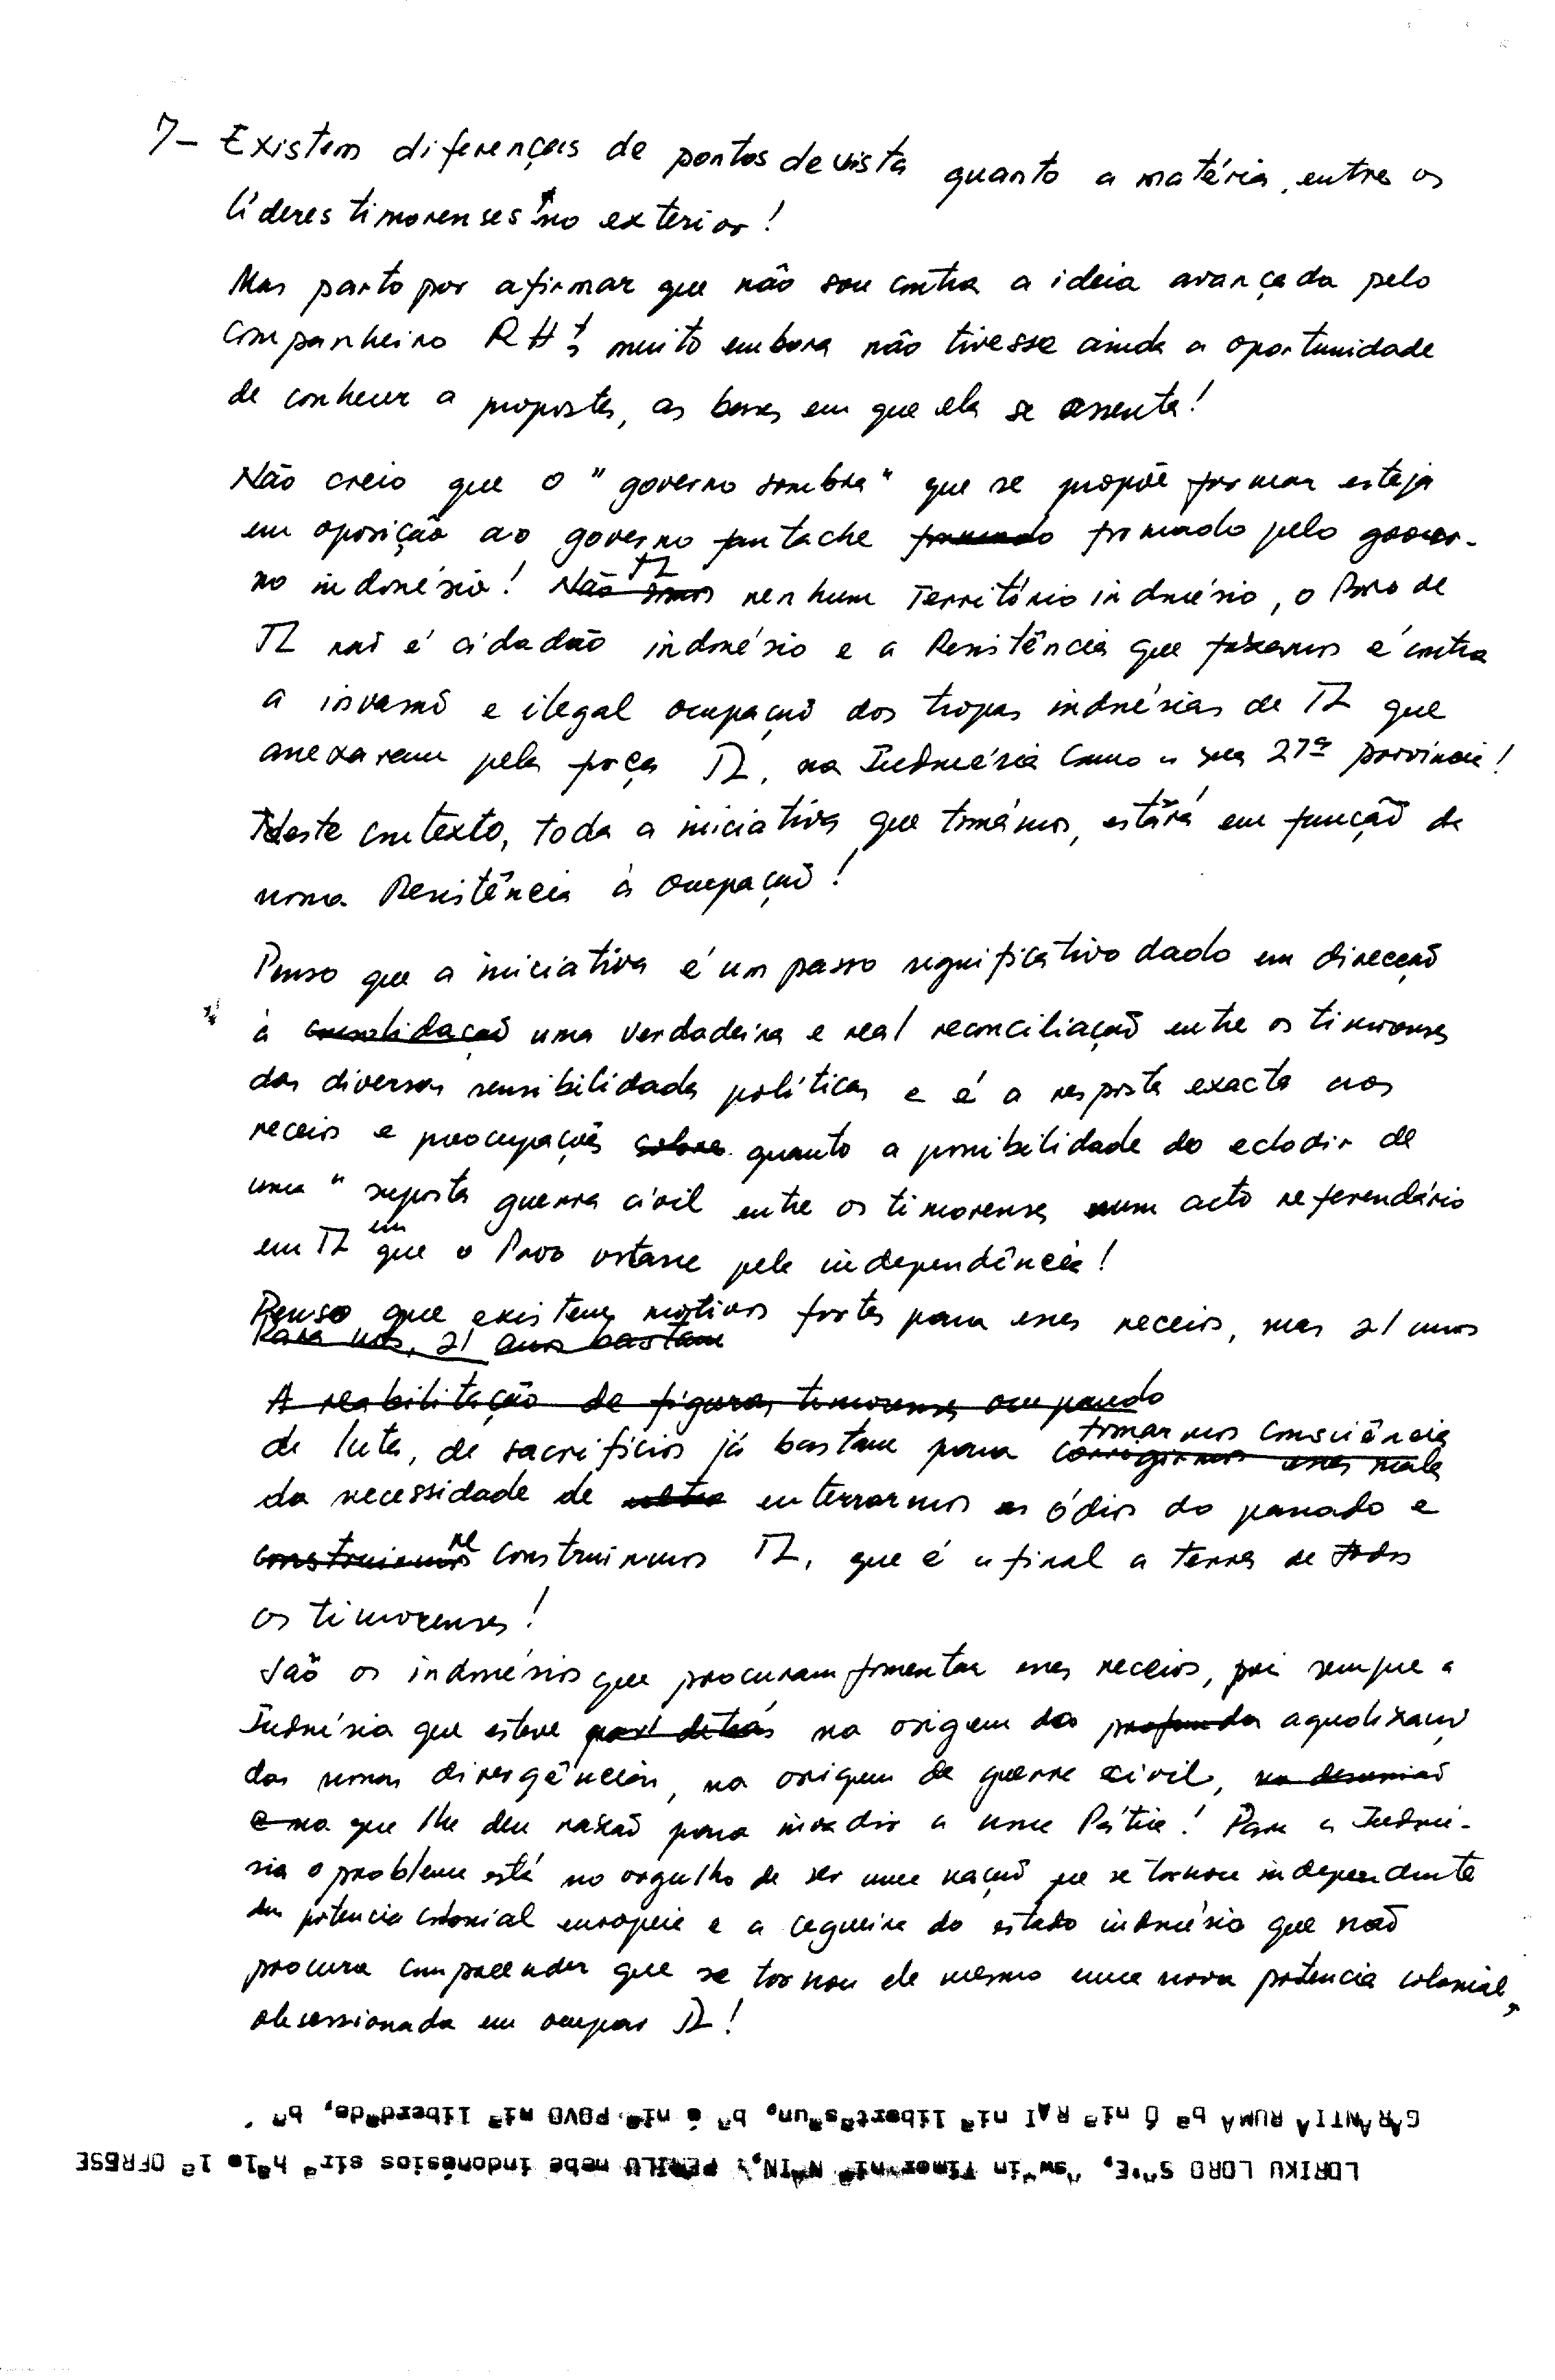 7- Existem diferenças de pontos de vista quanto a matéria, entre os
líderes timorenses no exterior!
Mas parto por afirmar que não sou contra a ideia avançada pelo
companheiro RH, muito embora não tivesse ainda a oportunidade
de conhecer a proposta, as bases em que ela se assenta!
Não creio que o "governo sombra" que se propõe formar esteja
em oposição ao governo fantache formado formado pelo gover-
no indonésio! Não somos TL nenhum Território indonésio, o Povo de
TL não é cidadão indonésio e a Resistência que fazemos é contra
a invasão e ilegal ocupação dos tropas indonésias de TL que
anexaram pela força TL, na Indonésia como a sua 27ª província!
Neste contexto, toda a iniciativa que tomámos, estará em função da
nossa Resistência à ocupação!
Penso que a iniciativa é um passo significativo dado em direcção
à consolidação uma verdadeira e real reconciliação entre os timorenses
das diversas sensibilidades políticas e é a resposta exacta aos
receios e preocupações sobre quanto a possibilidade do eclodir de
uma "suposta guerra civil entre os timorenses num acto referendário
em TL em que o Povo votasse pela independência!
Penso que existem motivos fortes para esses receios, mas 21 anos
Para nós, 21 anos bastam
A reabilitação de figuras timorenses ocupando
de luta, de sacrifícios já bastam para corrigirmos esses males tomarmos consciência
da necessidade de enterrarmos os ódios do passado e
construirmos re construirmos TL, que é afinal a terra de todos
os timorenses!
São os indonésios que procuram fomentar esses receios, pois sempre a
Indonésia que esteve por detrás na origem da profunda agudização
das nossas divergências, na origem da guerra civil, na desunião
e na que lhe deu razão para invadir a nossa Pátria! Para a Indoné-
sia o problema está no orgulho de ser uma nação que se tornou independente
da potencia colonial europeia e a cegueira do estado indonésio que não
procura compreender que se tornou ele mesmo uma nova potencia colonial,
obsessionada em ocupar TL!
LORIKU LORO timor PEMILU nebe indonésios sirª hªlo lª OFRESE
GARANTIA RUMA bª Ô niª RAI niª libertª bª é niª POVO niª liberdªde, bª